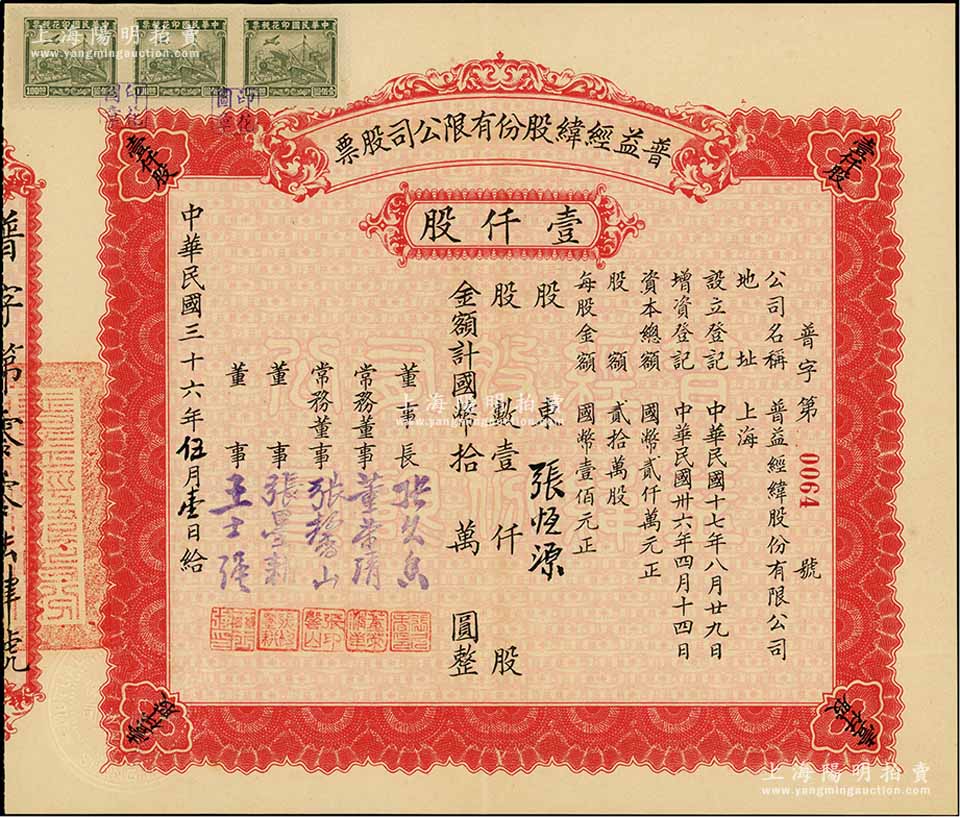 上海陽明拍賣
www.yangmingauction.com
中華民國印花稅票
中華民國印花稅票
中華民國印花稅票
普益經緯股份有限公司股票
壹仟股
壹仟股
壹仟股
普字第 0064 號
公司名稱 普益經緯股份有限公司
地址 上海
設立登記 中華民國十七年八月廿九日
增資登記 中華民國卅六年四月十四日
資本總額 國幣貳仟萬元正
股額 貳拾萬股
每股金額 國幣壹佰元正
股東 張恆源
股數 壹仟股
金額計國幣 拾萬圓整
董事長
常務董事 董榮清
常務董事
董事
董事
中華民國三十六年伍月壹日給
普字第零零陸肆號
上海陽明拍賣
www.yangmingauction.com
上海陽明拍賣
www.yangmingauction.com